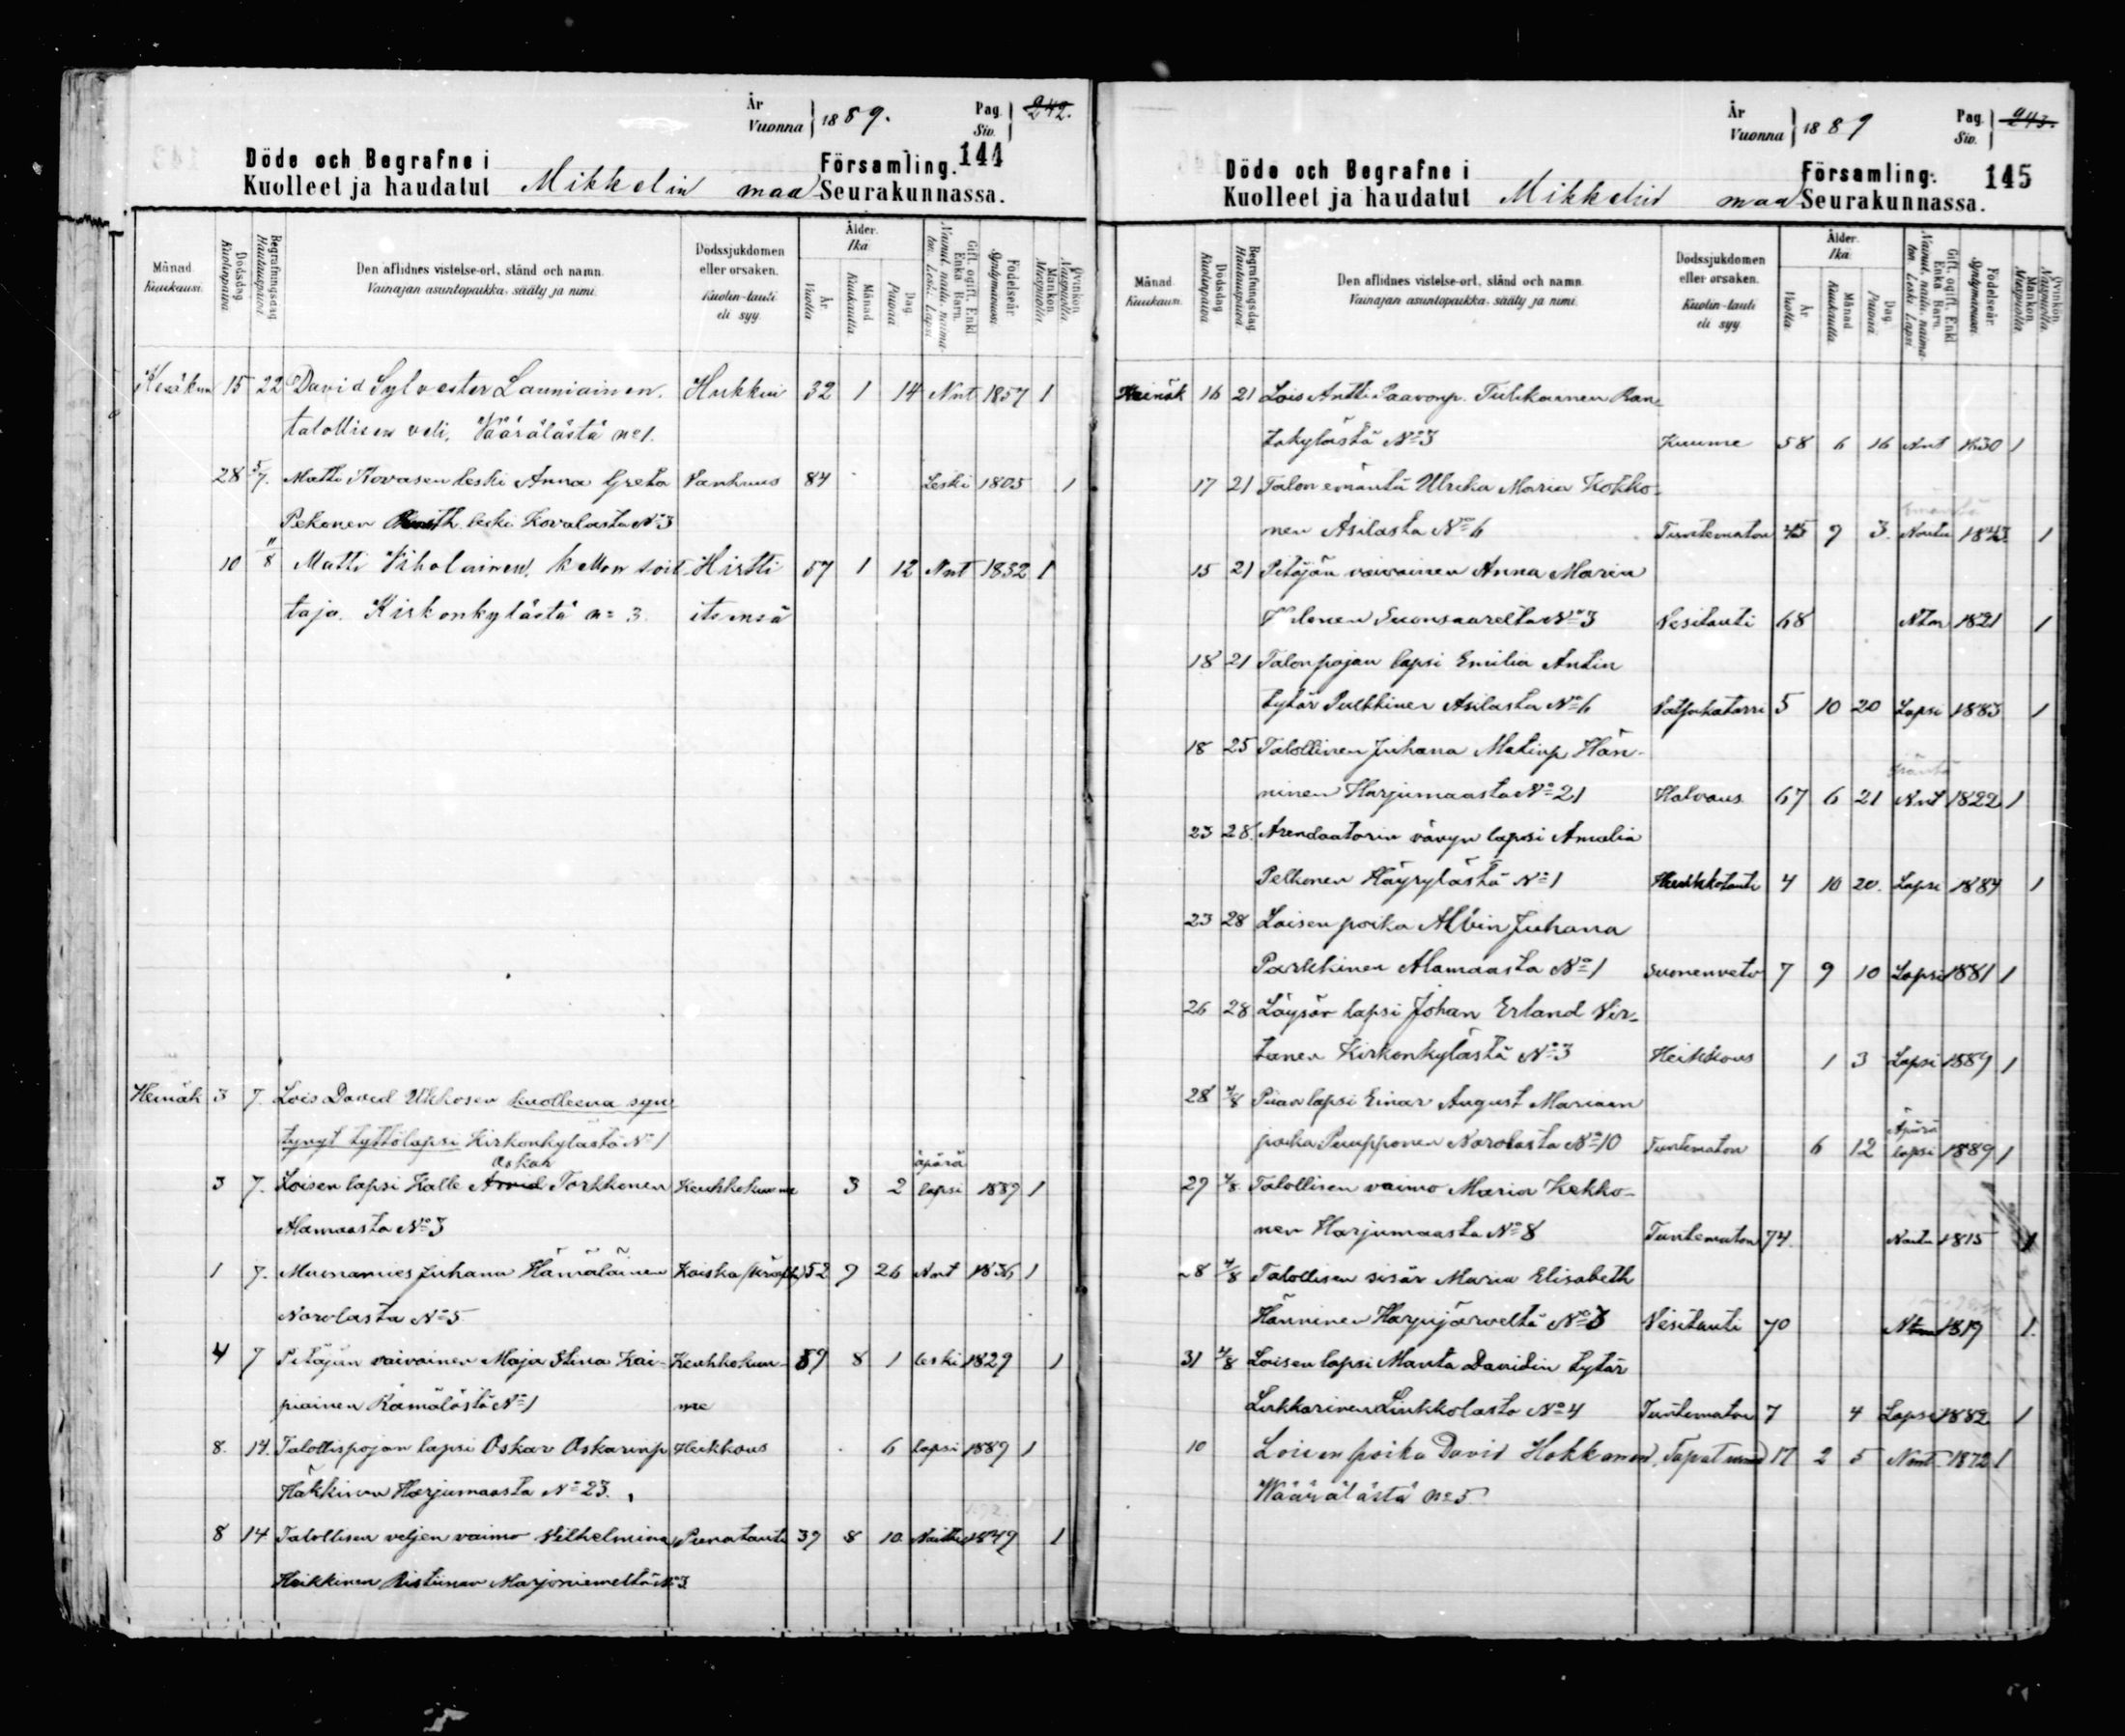 År
Vuonna 1889.
Pag.
Siv. 242.
Döde och Begrafne i
Kuolleet ja haudatut Mikkelin maa
Församling. 144
Seurakunnassa.
Månad. Kuukausi.
Dödsdag. Kuolinpäivä
Begrafningsdag. Hautauspäivä
Den aflidnes vistelse-ort, stånd och namn.
Vainajan asuntopaikka, sääty ja nimi.
Dödssjukdomen eller orsaken.
Kuolin-tauti eli syy.
Ålder. Ikä.
År Vuotta
Månad Kuukautta
Dag. Päivää
Gift, ogift, Enkl. Enka Barn.
Nainut, naitu, naimaton. Leski. Lapsi
Födelseår. Syntymävuosi.
Mankön Miespuolia
Qvinkön Naispuolia
Kesäkuu 15 22 David Sylvester Launiainen. Hukkui 32 1 14 Nnt 1857 1
talollisen veli, Väärälästä no 1.
28 5/7. Matti Kovasen leski Anna Greta Vanhuus 84 Leski 1805 1
Pekonen leski Kovalasta No 3
10 11/8 Matti Viholainen, kellon soit- Hirtti 57 1 12 Nnt 1832 1
taja. Kirkonkylästä no 3. itsensä
Heinäk 3 7. Lois David Ukkosen kuolleena syn
tynyt tyttölapsi Kirkonkylästä No 1
Oskar äpärä
3 7. Loisen lapsi Kalle Arvid Torkkonen Keuhkokuume 3 2 lapsi 1889 1
Alamaasta No 3
1 7. Muonamies Juhana Hämäläinen Kaiska 52 9 26 Nnt 1836 1
Narolasta No 5
4 7 Pitäjän vaivainen Maja Stina Kai- Keuhkokuu- 59 8 1 leski 1829 1
piainen Rämälästä No 1 me
8. 14. Talollispojan lapsi Oskar Oskarinp Heikkous 6 lapsi 1889 1
Häkkinen Harjumaasta No 23.
8 14 Talollisen veljen vaimo Vilhelmina Punatauti 39 8 10. Naitu 1849 1
Heikkinen Ristiinan Marjoniemeltä No 3
År
Vuonna 1889
Pag.
Siv. 243.
Döde och Begrafne i
Kuolleet ja haudatut Mikkelin maa
Församling. 145
Seurakunnassa.
Månad. Kuukausi.
Dödsdag. Kuolinpäivä
Begrafningsdag. Hautauspäivä
Den aflidnes vistelse-ort, stånd och namn.
Vainajan asuntopaikka, sääty ja nimi.
Dödssjukdomen eller orsaken.
Kuolin-tauti eli syy.
Ålder. Ikä.
År Vuotta
Månad Kuukautta
Dag. Päivää
Gift, ogift, Enkl. Enka Barn.
Nainut, naitu, naimaton. Leski. Lapsi
Födelseår. Syntymävuosi.
Mankön Miespuolia
Qvinkön Naispuolia
Heinäk 16 21 Lois Antti Paavonp. Tulikainen Ran-
takylästä No 3 Kuume 58 6 16 Nnt 1830 1
17 21 Talon emäntä Ulrika Maria Kokko-
nen Asilasta No 6 Tuntematon 45 9 3. Naitu 1843 1
15 21 Pitäjän vaivainen Anna Maria
Suonsaarelta No 3 Vesitauti 68 Ntm 1821 1
18 21 Talonpojan lapsi Emilia Antin
tytär Pulkkinen Asilasta No 6 Vatsakatarri 5 10 20 Lapsi 1883 1
18 25 Talollinen Juhana Matinp Hän-
ninen Harjumaasta No 21 Halvaus 67 6 21 Nnt 1822 1
23 28. Arendaatorin vävyn lapsi Amalia
Pelkonen Häyrylästä No 1 Keuhkotauti 4 10 20. Lapsi 1884 1
23 28 Loisen poika Alvin Juhana
Parkkinen Alamaasta No 1 suonenveto 7 9 10 Lapsi 1881 1
26 28 Löysän lapsi Johan Erland Vir-
tanen Kirkonkylästä No 3 Heikkous 1 3 Lapsi 1889 1
28 4/8 Piian lapsi Einar August Marian Äpärä
poika Pumpponen Narolasta No 10 Tuntematon 6 12 lapsi 1889 1
29 4/8. Talollisen vaimo Maria Kekko-
nen Harjumaasta No 8 Tuntematon 74. Naitu 1815 1
28 4/8 Talollisen sisär Maria Elisabeth
Hänninen Harjujärveltä No 3 Vesitauti 70 Ntm 1819 1.
31 4/8 Loisen lapsi Manta Davidin tytär
Liukkarinen Liukkolasta No 4 Tuntematon 7 4 Lapsi 1882 1
10 Loisen poika David Hokkanen, Tapaturma 17 2 5 Nmt. 1872 1
Wäärälästä no 5